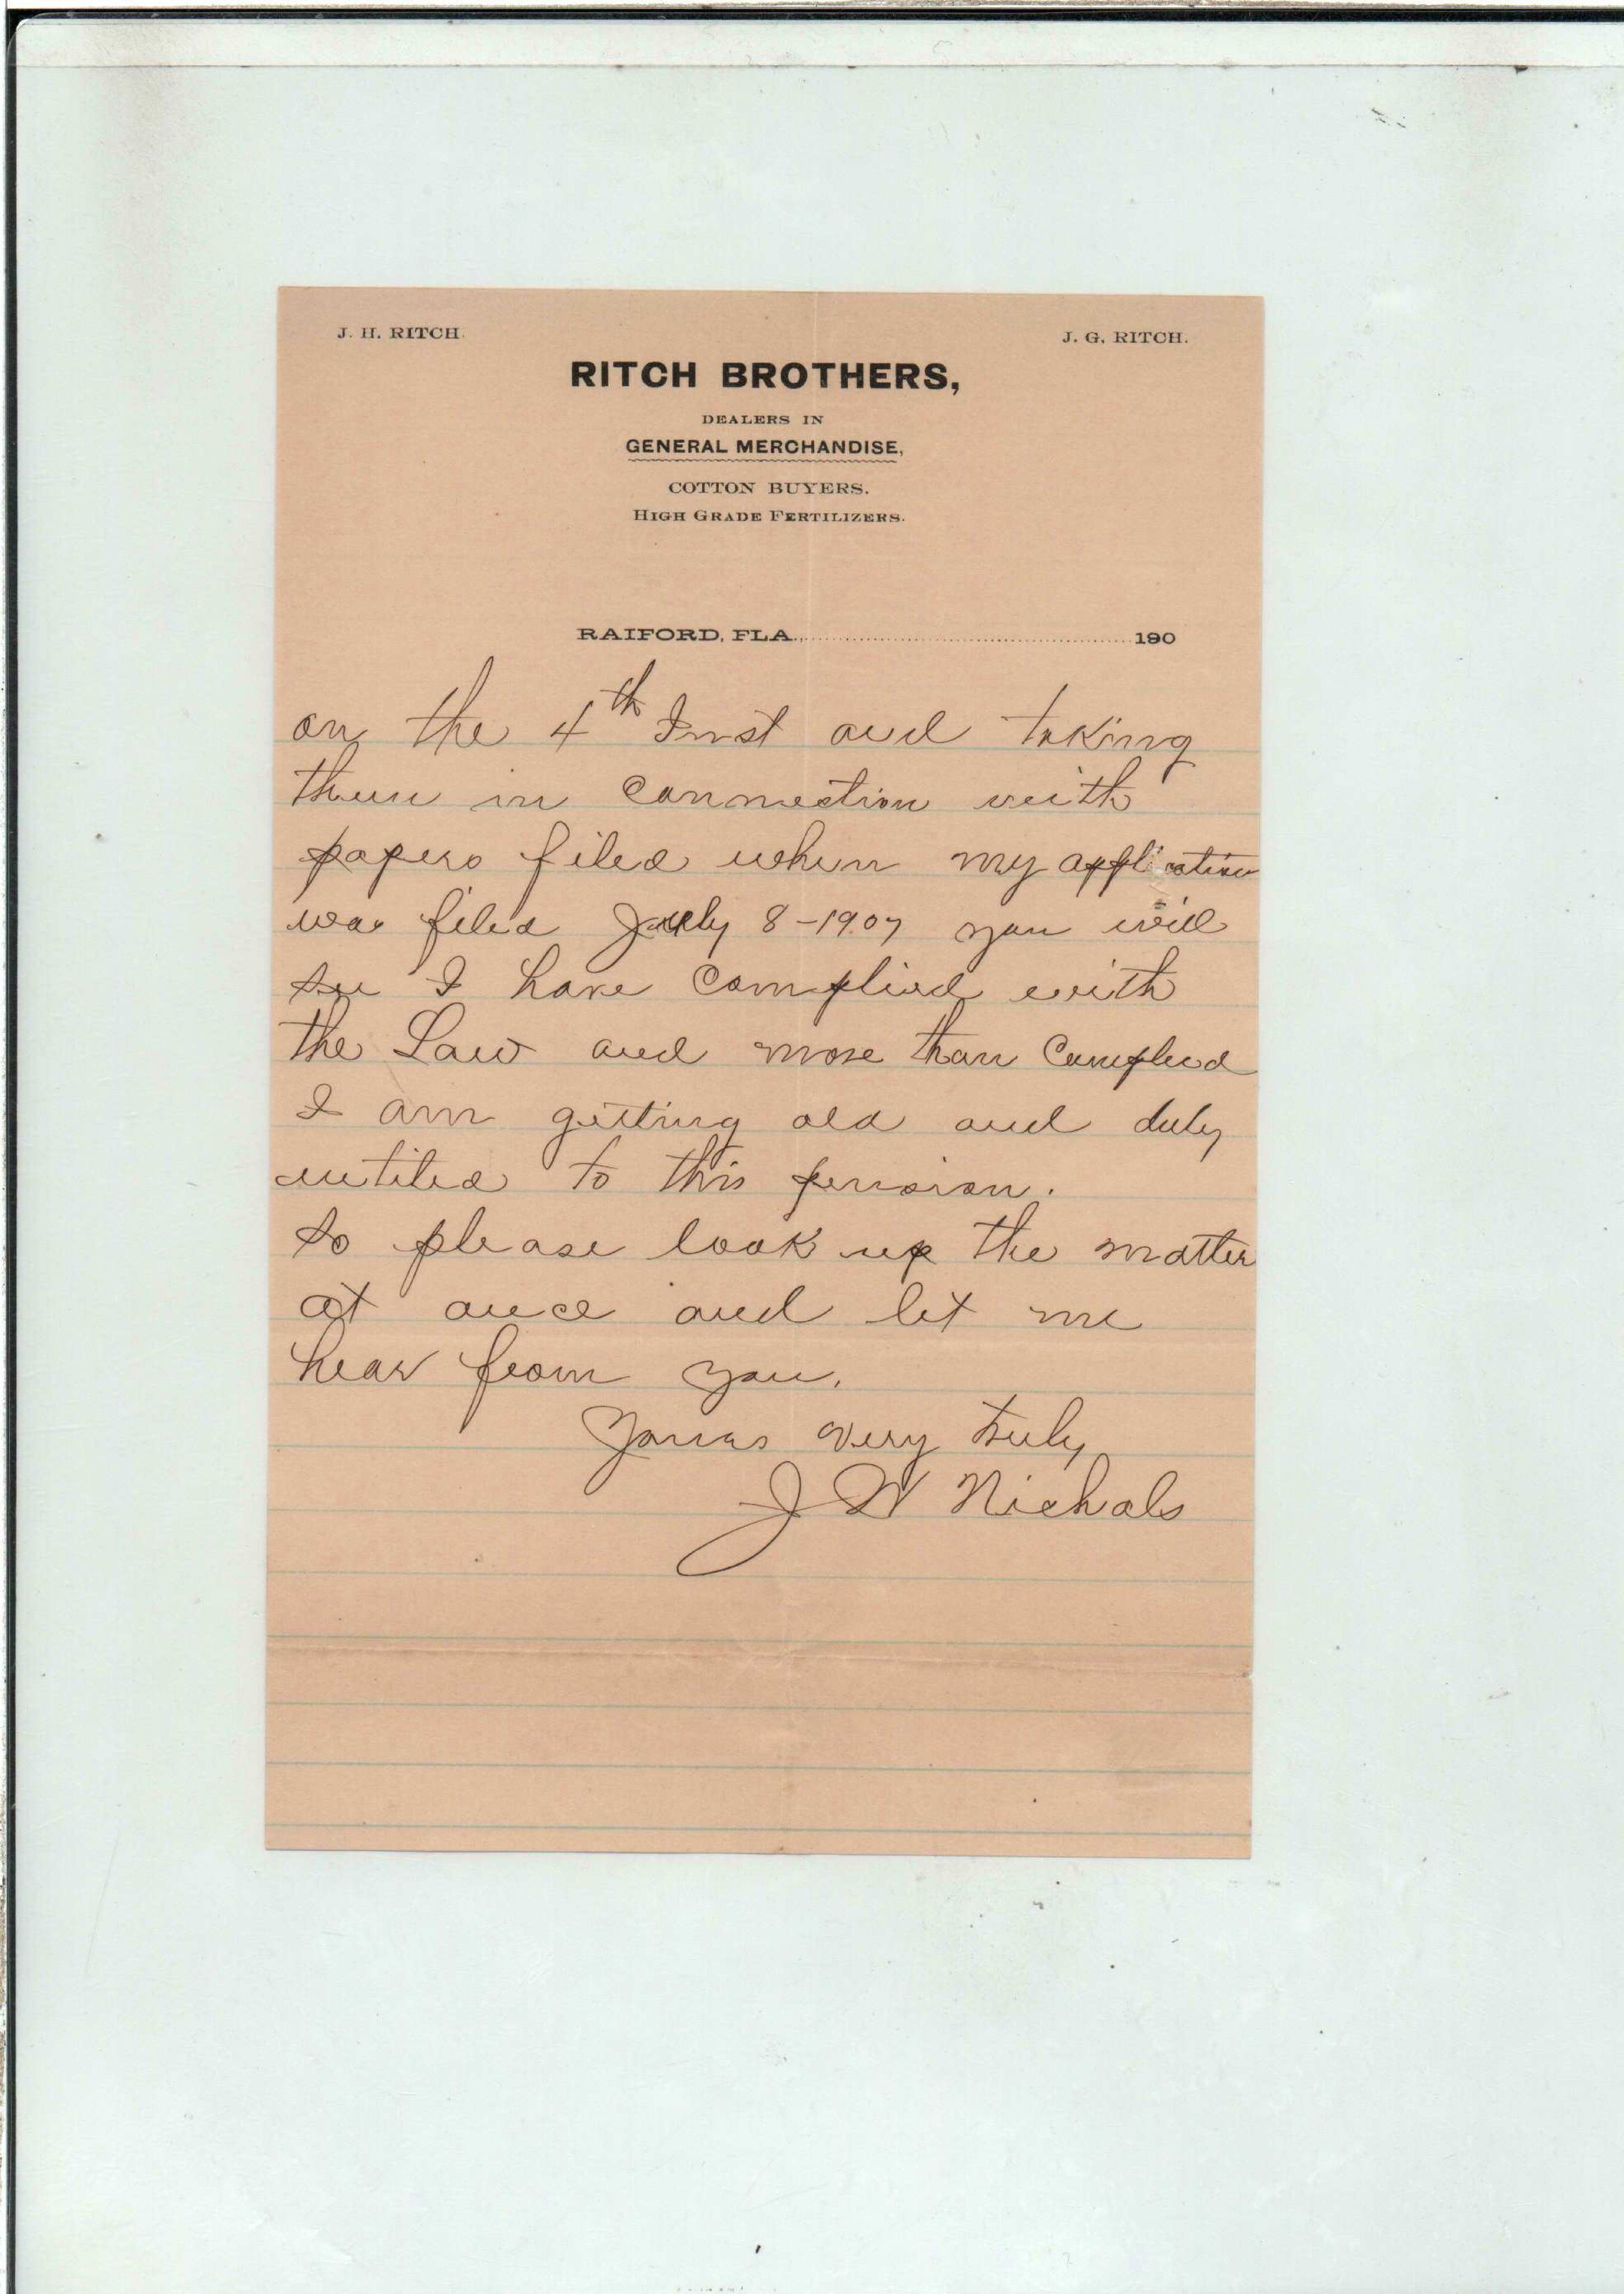 J. H. RITCH.
J. G. RITCH.
RITCH BROTHERS,
DEALERS IN
GENERAL MERCHANDISE,
COTTON BUYERS.
HIGH GRADE FERTILIZERS.
RAIFORD, FLA. 190
on the 4th Inst and taking
them in connection with
papers filed when my application
was filed July 8-1907 you will
see I have complied with
the Law and more than complied
I am getting old and duly
entiled to this pension.
so please look up the matter
at once and let me
hear from you.
Yours very truly
J W Nichols